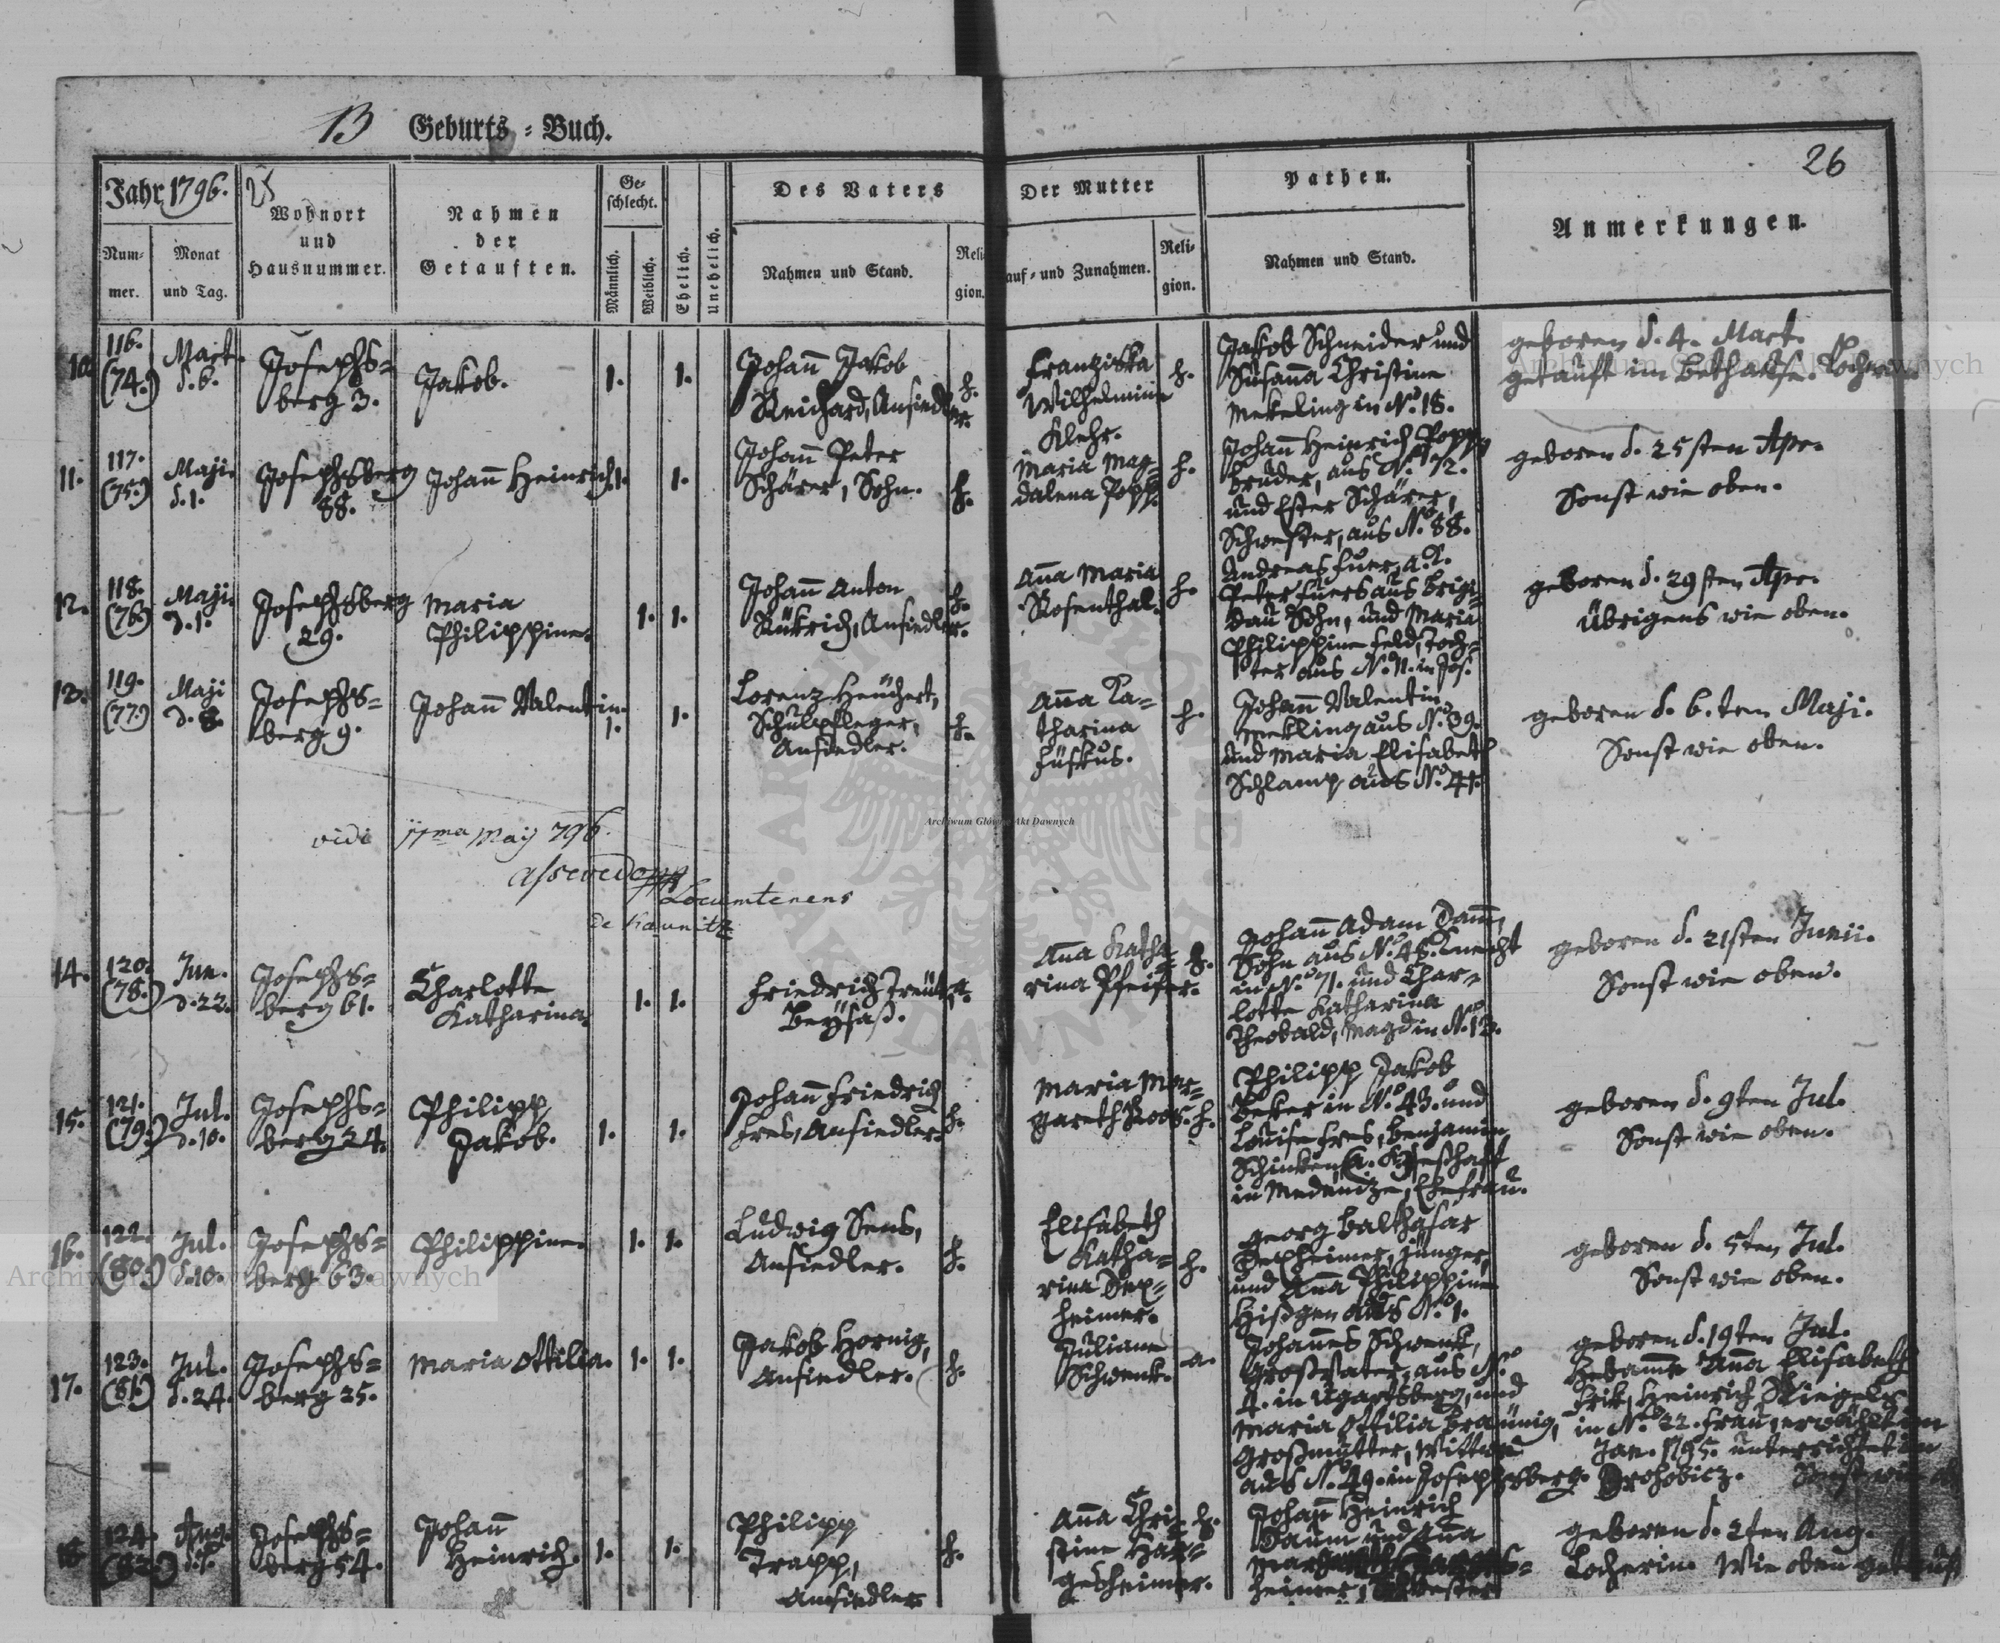 13 Geburts-Buch.
26
Jahr 1796.
Num-
mer.
Monat
und Tag.
Wohnort
und
Hausnummer.
Nahmen
der
Getauften.
Ge-
schlecht.
Männlich.
Weiblich.
Ehelich.
Unehelich.
Des Vaters
Nahmen und Stand.
Reli
gion.
Der Mutter
auf- und Zunahmen.
Reli-
gion.
Pathen.
Nahmen und Stand.
Anmerkungen.
10
116.
(74.)
Mart.
d. 6.
Josephs-
berg 3.
Jakob.
1.
1.
Johann Jakob
Reichard, Ansiedler.
h.
Franziska
Wilhelmine
Klehr.
h.
Jakob Schneider und
Susanna Christine
Mekeling in No. 18.
geboren d. 4. Mart.
getauft im Bethause.
11.
117.
(75.)
Maji.
d. 1.
Josephsberg
88.
Johann Heinrich.
1.
1.
Johann Peter
Schärer, Sohn.
h.
Maria Mag-
dalena Popp.
h.
Johann Heinrich Popp,
Bruder, aus No. 72.
und Ester Schärer,
Schwester, aus No. 88.
geboren d. 25sten Apr.
Sonst wie oben.
12.
118.
(76)
Maji.
d. 1.
Josephsberg
29.
Maria
Philippine.
1.
1.
Johann Anton
Rükrich, Ansiedler.
h.
Anna Maria
Rosenthal.
h.
Andreas
Peter aus Brigi-
dau Sohn, und Maria
Philippine Feld, Toch-
ter aus No. 11. in Jos.
geboren d. 29sten Apr.
Übrigens wie oben.
13.
119.
(77)
Maji
d. 8.
Josephs-
berg 9.
Johann Valentin.
1.
1.
Lorenz Heuchert,
Schulpfleger,
Ansiedler.
h.
Anna Ka-
tharina
Füskus.
h.
Johann Valentin
Mekling aus No. 39.
und Maria Elisabeth
Schlamp aus No. 41.
geboren d. 6.ten Maji.
Sonst wie oben.
vidi 11ma Maij 796.
Locumtenens
de Kaunitz
14.
120.
(78.)
Jun.
d. 22.
Josephs-
berg 61.
Charlotte
Katharina.
1.
1.
Friedrich
Beysaß.
Anna Katha-
rina Pfeifer.
h.
Johann Adam Damm,
Sohn aus No. 48. Knecht
in No. 71. und Char-
lotte Katharina
Theobald, Magd in No. 13.
geboren d. 21sten Junii.
Sonst wie oben.
15.
121.
(79.)
Jul.
d. 10.
Josephs-
berg 24.
Philipp
Jakob.
1.
1.
Johann Friedrich
Fres, Ansiedler.
h.
Maria Mar-
gareth Roos.
h.
Philipp Jakob
Beker in No. 43. und
Louise Fres, Benjamin
in Medenize, Ehefrau.
geboren d. 9ten Jul.
Sonst wie oben.
16.
122.
(80.)
Jul.
d. 10.
Josephs-
berg 63.
Philippine.
1.
1.
Ludwig Sens,
Ansiedler.
h.
Elisabeth
Katha-
rina Dex-
heimer.
h.
Georg Balthasar
Dexheimer, Jünger,
und Anna Philippine
Hißgen aus No. 1.
geboren d. 5ten Jul.
Sonst wie oben.
17.
123.
(81.)
Jul.
d. 24.
Josephs-
berg 25.
Maria Ottilia.
1.
1.
Jakob Hornig,
Ansiedler.
h.
Juliane
Schwenk.
a.
Johannes Schwenk,
Großvater, aus No.
4. in Ugartsberg, und
Maria Ottilia Bräunig,
Großmutter, Wittwe
aus No. 49. in Josephsberg.
geboren d. 19ten Jul.
Hebamme Anna Elisabeth
Heinrich
in No. 22. Frau, erwählt im
Jan. 1795. unterrichtet in
Drohobicz. Sonst wie ob
18
124.
(82)
Aug.
Josephs-
berg 54.
Johann
Heinrich.
1.
1.
Philipp
Trapp,
Ansiedler
h.
Anna Chri-
stine Har-
gesheimer.
h.
Johann Heinrich
Daum und Anna
heimer, Schwester
geboren d. 2ten Aug.
Locherin. Wie oben getauft
Archiwum Główne Akt Dawnych